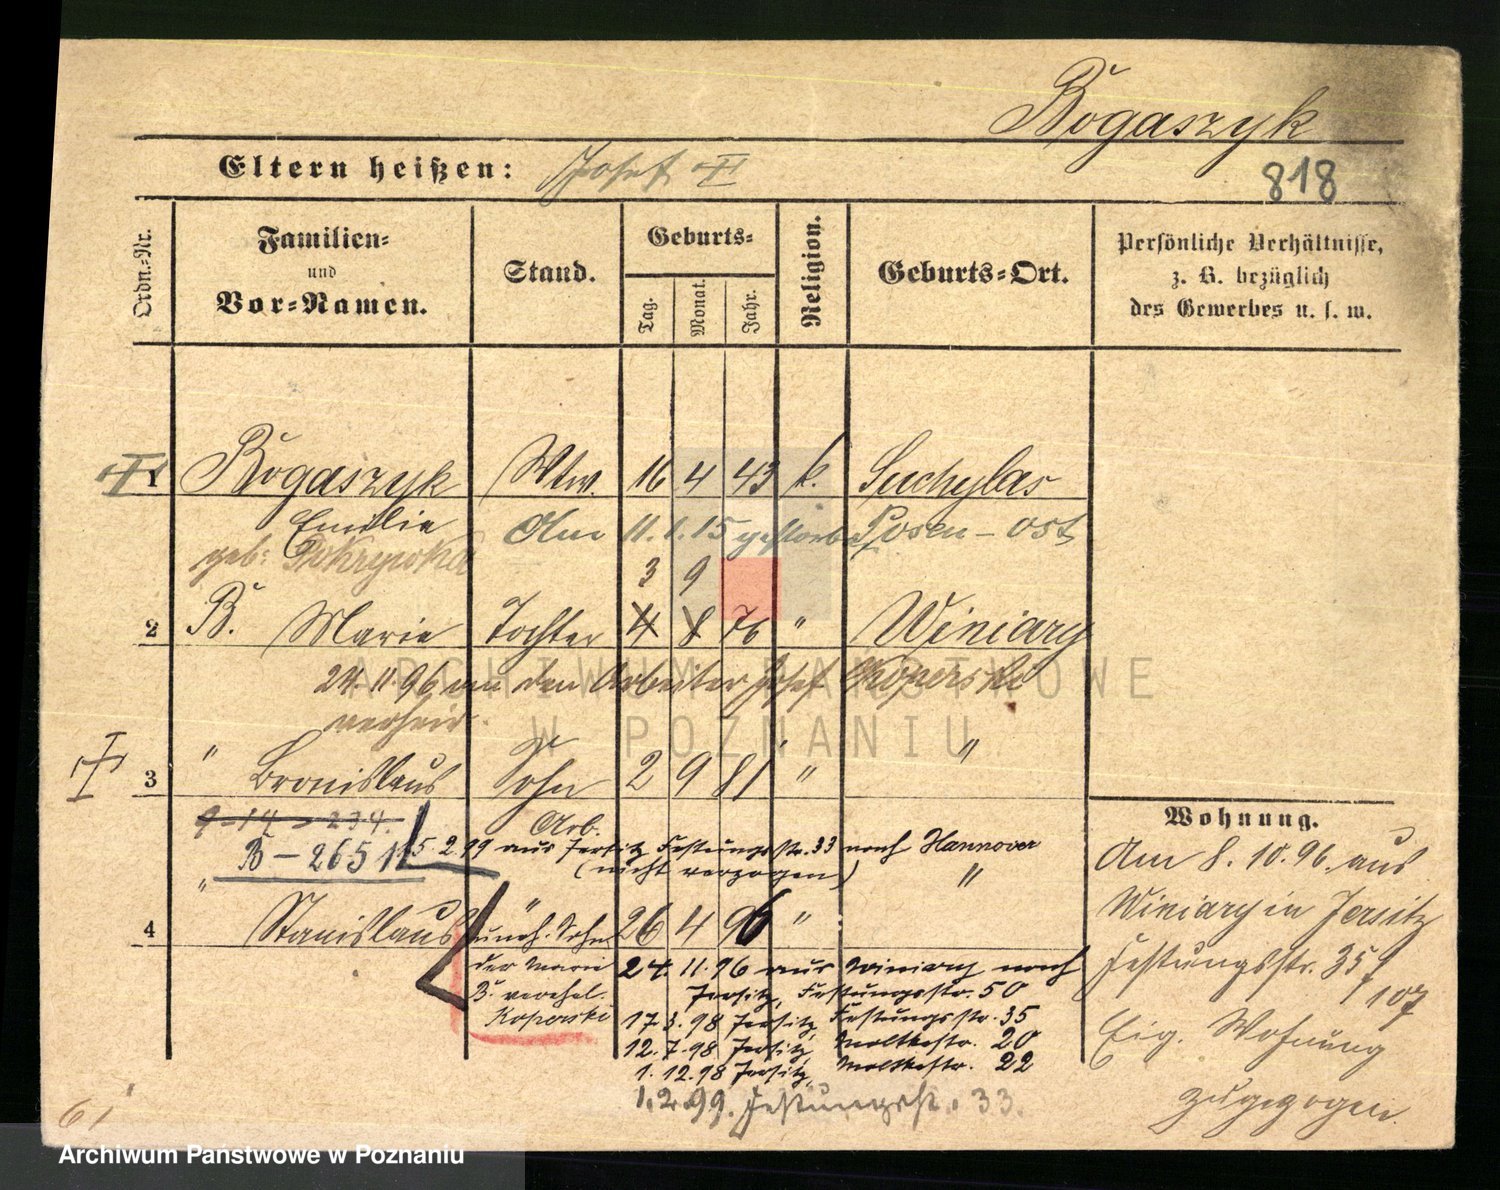 Bogaszyk
Eltern heißen: Josef
818
Ordn.-Nr.
Familien-
und
Vor-Namen.
Stand.
Geburts-
Tag.
Monat.
Jahr.
Religion.
Geburts-Ort.
Persönliche Verhältnisse,
z. B. bezüglich
des Gewerbes u. s. w.
1 Bogaszyk Wtw. 16 4 43 k. Suchylas
Emilie Am 11.1.15 gestorben Posen-Ost
geb:
3 9
2 B. Marie Tochter 4 8 76 " Winiary
24.11.96 an den Arbeiter Josef Koperski
verheir.
3 " Bronislaus Sohn 2 9 81 " "
9-14-234. Arb.
B-265 15.2.99 aus Jersitz Festungsstr. 33 nach Hannover
(nicht verzogen)
4 " Stanislaus " uneh. Sohn 26 4 96 " "
der Marie
B. verehel.
Koperski
24.11.96 aus Winiary nach
Jersitz, Festungsstr. 50
17.3.98 Jersitz, Festungsstr. 35
12.7.98 Jersitz, Moltkestr. 20
1.12.98 Jersitz, Moltkestr. 22
1.2.99. Festungsstr. 33.
Wohnung.
Am 8.10.96. aus
Winiary in Jersitz
Festungsstr. 35
107
Eig. Wohnung
zugezogen.
61
ARCHIWUM PAŃSTWOWE
W POZNANIU
Archiwum Państwowe w Poznaniu